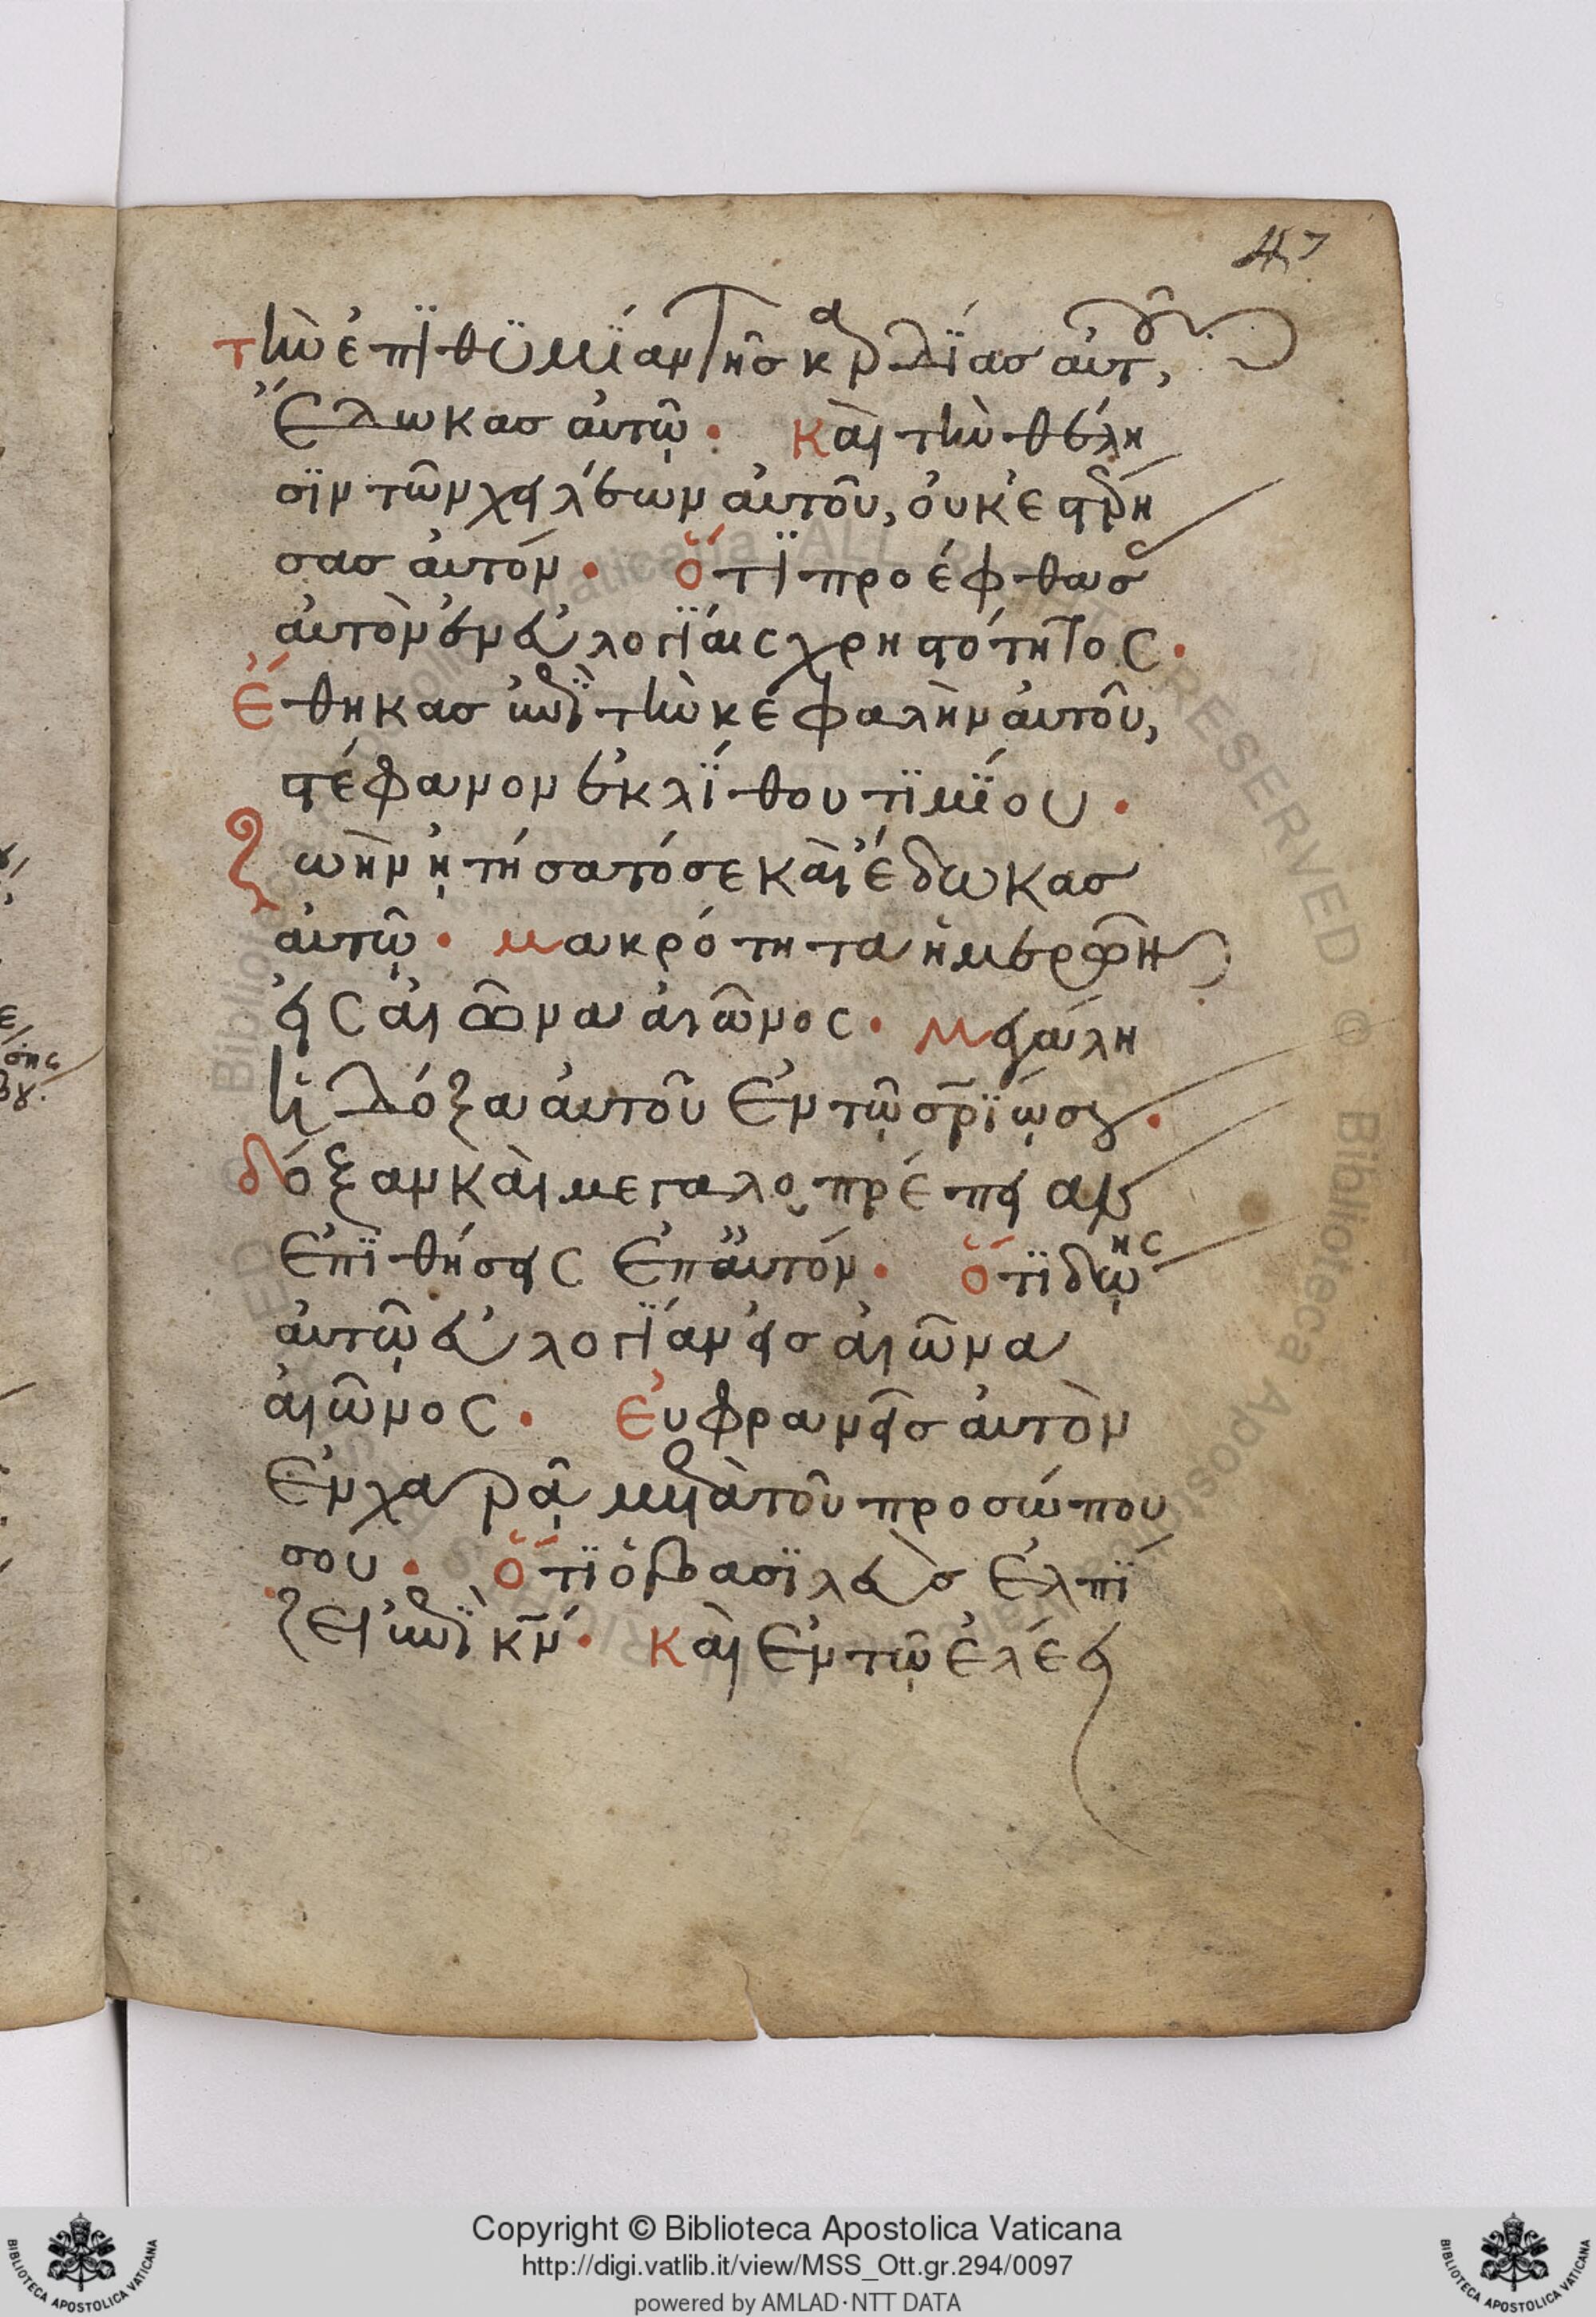 47
τὴν ἐπϊθϋμΐαν τῆσ καρδΐασ αὐτοῦ,
ἔδωκασ αὐτῷ· Καὶ τὴν θέλη
σϊν τῶν χειλέων αὐτοῦ, οὐκ ἐστέρη
σασ αὐτόν· ὅτϊ προέφθασ
αὐτὸν ἐν εὐλογΐαις χρηστότητος·
ἔθηκασ ἐπῒ τὴν κεφαλὴν αὐτοῦ,
στέφανον ἐκ λΐθου τϊμΐου·
ζωὴν ᾐτήσατό σε καὶ ἔδωκασ
αὐτῷ· μακρότητα ἡμερῶν
εἰς αἰῶνα αἰῶνος· Μεγάλη
ἡ δόξα αὐτοῦ ἐν τῷ σρϊῴ σου·
δόξαν καὶ μεγαλοπρέπειαν
ἐπϊθήσεις ἐπ αὐτόν· ὅτϊ δώῃς
αὐτῷ εὐλογΐαν εἰσ αἰῶνα
αἰῶνος· Εὐφρανεῖσ αὐτὸν
ἐν χαρᾷ μετὰ τοῦ προσώπου
σου· ὅτϊ ὁ βασϊλεὺσ ἐλπΐ
ζει ἐπῒ κν· Καὶ ἐν τῷ ἐλέει
Copyright © Biblioteca Apostolica Vaticana
http://digi.vatlib.it/view/MSS_Ott.gr.294/0097
powered by AMLAD·NTT DATA